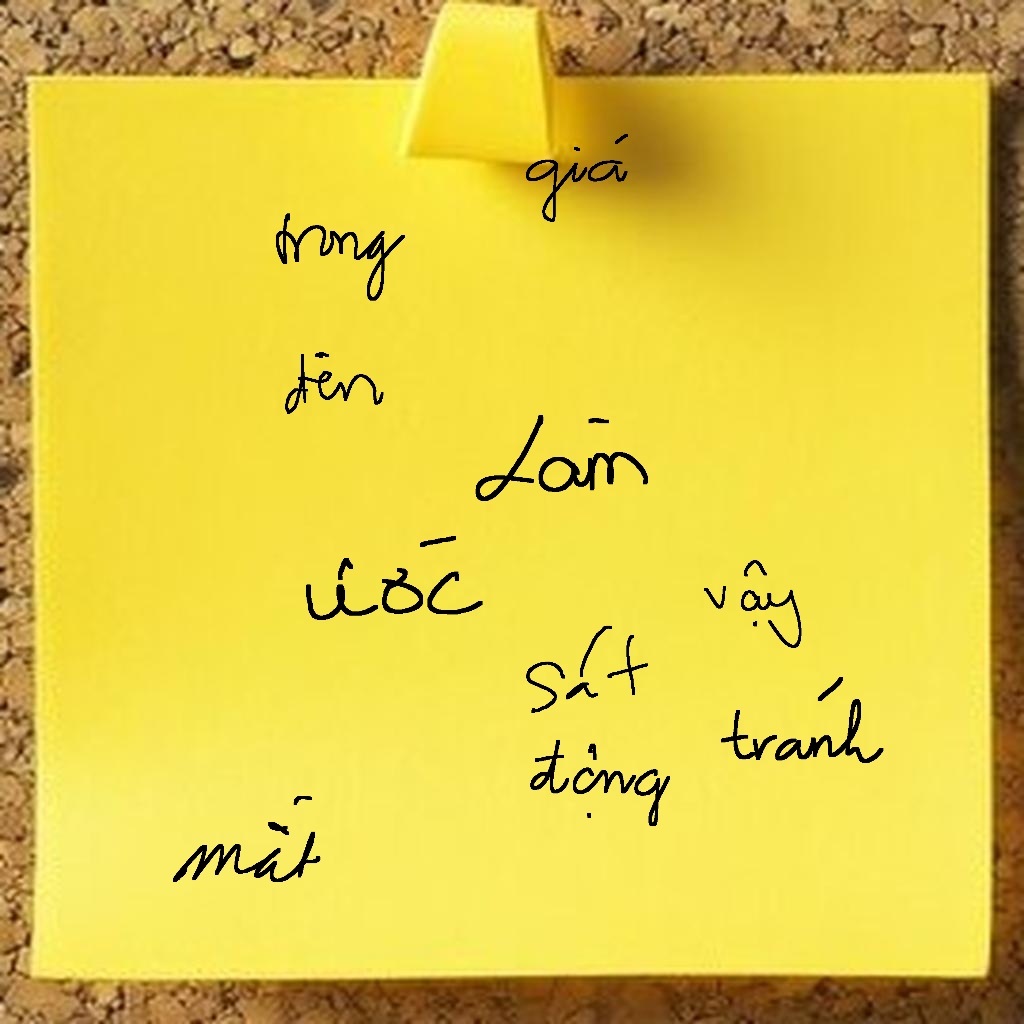 giá
trong
đến
Làm
ước
vậy
sát
tránh
động
mất